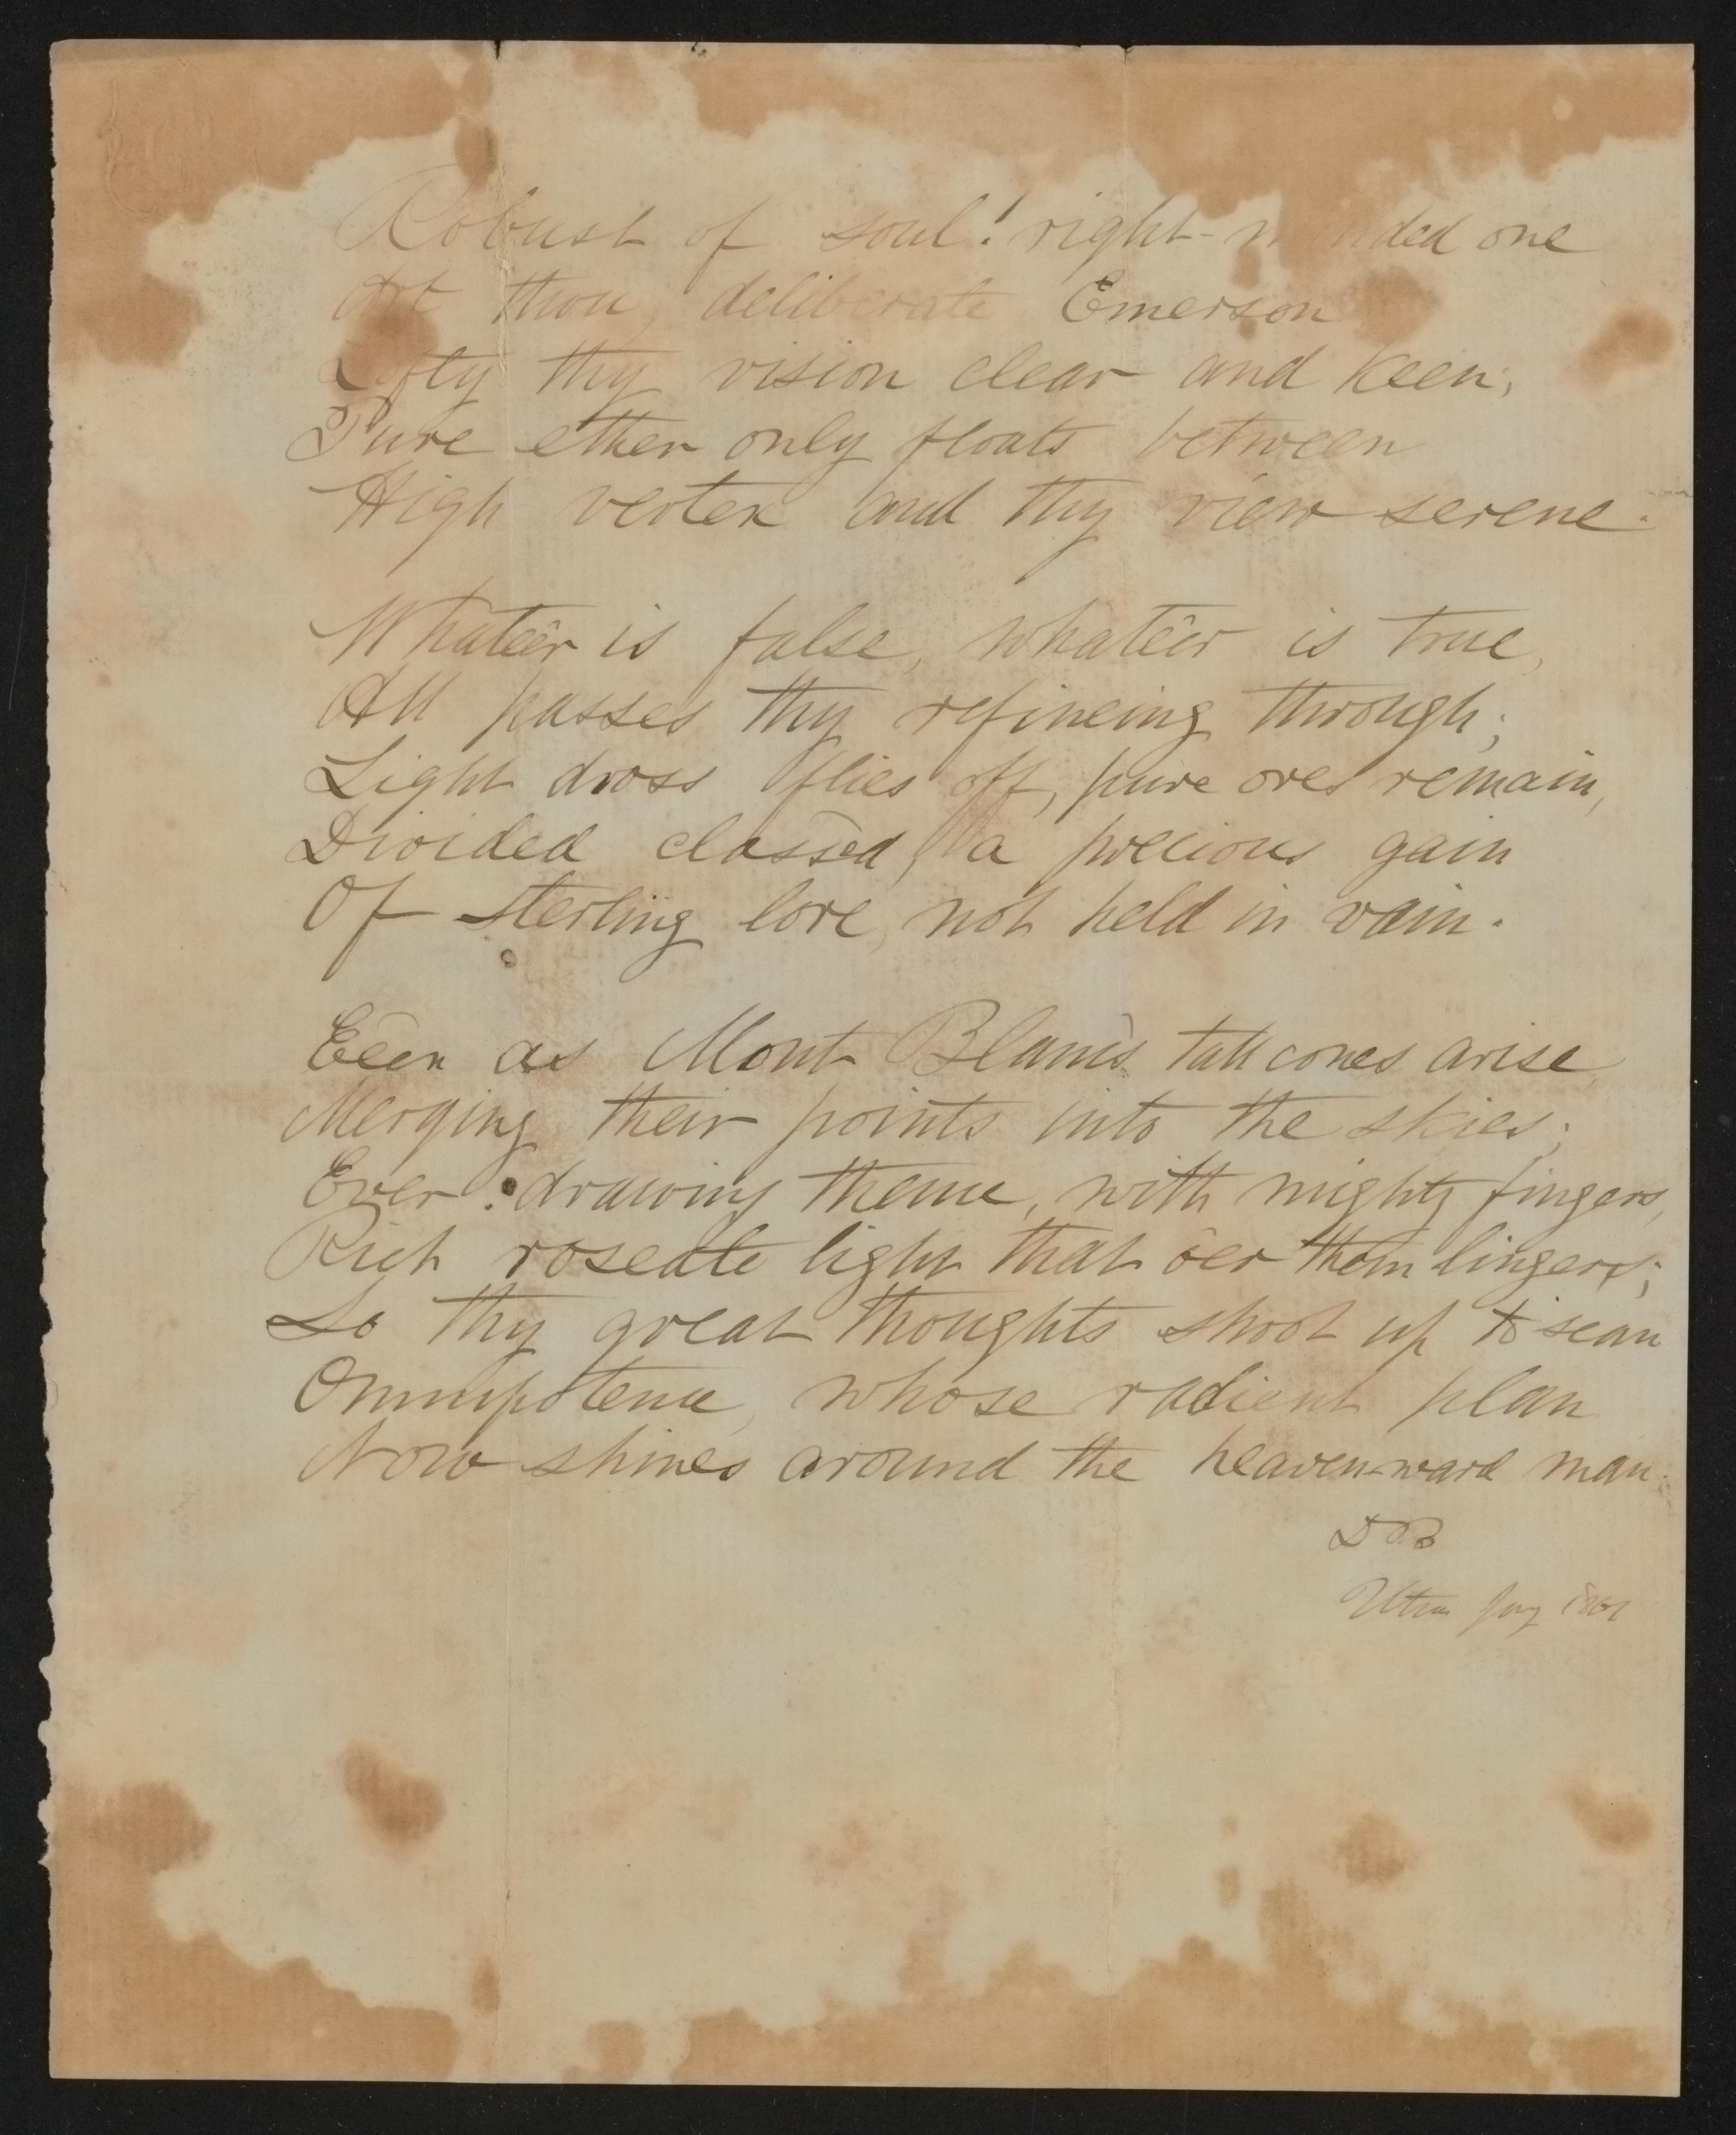 Robust of soul! right-minded one
Art thou, deliberate Emerson
Lofty thy vision clear and keen;
Pure ether only floats between
High vertex and thy view serene.
Whateêr is false, whateêr is true,
All passes thy refineing through;
Light dross flies off, pure ores remain,
Divided classed, a precious gain
Of sterling lore, not held in vain.
Eêen as Mont Blanc's tall cones arise
Merging their points into the skies;
Ever drawing thence, with mighty fingers,
Rich roseate light that ôer them lingers;
So thy great thoughts shoot up to scan
Omnipotence, whose radient plan
Now shines around the heaven-ward man.
D B